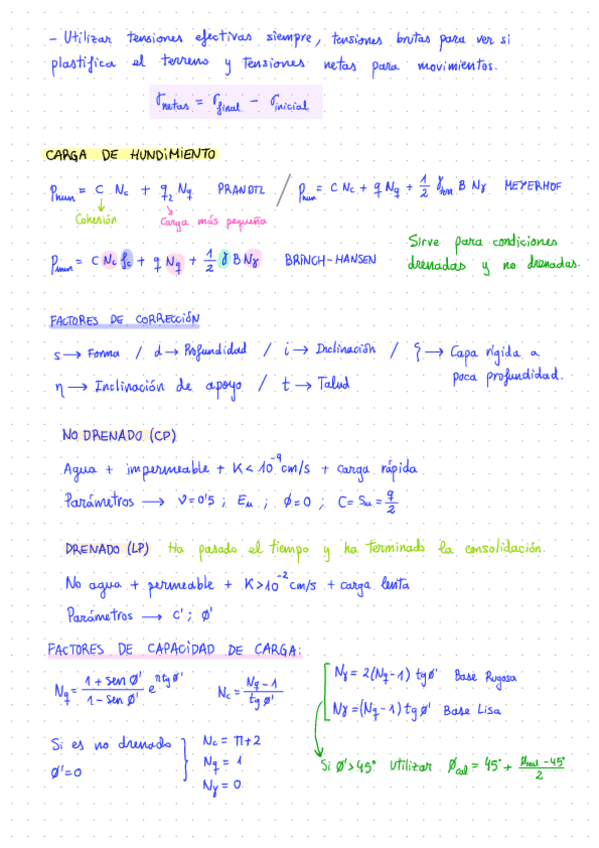 - Utilizar tensiones efectivas siempre, tensiones brutas para ver si
plastifica el terreno y tensiones netas para movimientos.
σnetas = σfinal - σinicial
CARGA DE HUNDIMIENTO
Phun = C Nc + q2 Nq PRANDTL / Phun = C Nc + q Nq + 1/2 γhun B Nγ MEYERHOF
Cohesión Carga más pequeña
Phun = C Nc fc + q Nq + 1/2 γ B Nγ BRINCH-HANSEN
Sirve para condiciones
drenadas y no drenadas.
FACTORES DE CORRECCIÓN
s → Forma / d → Profundidad / i → Inclinación / ξ → Capa rígida a
poca profundidad.
η → Inclinación de apoyo / t → Talud
NO DRENADO (CP)
Agua + impermeable + K < 10^-9 cm/s + carga rápida
Parámetros → ν = 0'5 ; Eu ; Ø = 0 ; C = Su = q/2
DRENADO (LP) Ha pasado el tiempo y ha terminado la consolidación.
No agua + permeable + K > 10^-2 cm/s + carga lenta
Parámetros → c' ; Ø'
FACTORES DE CAPACIDAD DE CARGA:
Nq = (1 + sen Ø')/(1 - sen Ø') e^(π tg Ø') Nc = (Nq - 1)/(tg Ø')
Nγ = 2(Nq - 1) tg Ø' Base Rugosa
Nγ = (Nq - 1) tg Ø' Base Lisa
Si es no drenado
Ø' = 0
Nc = π + 2
Nq = 1
Nγ = 0
Si Ø' > 45° utilizar Øcal = 45° + (Øreal - 45°)/2